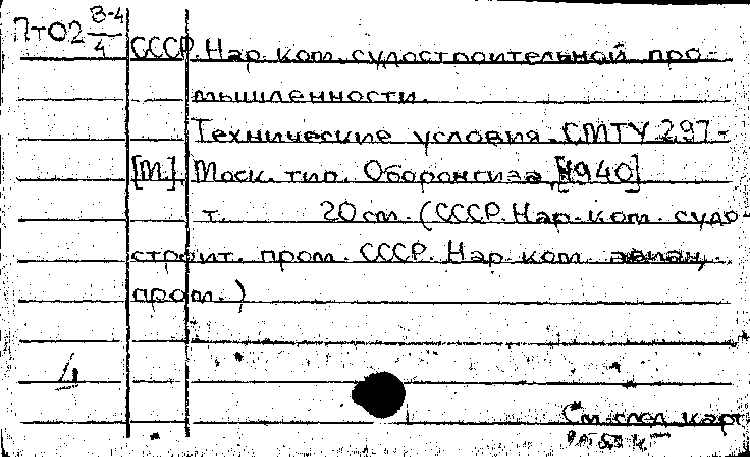 П-02 В-4/4
СССР. Нар. ком. судостроительной про-
мышленности.
Технические условия. СМТУ 297-
[М.], Моск. тип. Оборонгиза, [1940]
т. 20 см. (СССР. Нар. ком. судо-
строит. пром. СССР. Нар. ком. авиац.
пром.)
4
См. след. карт